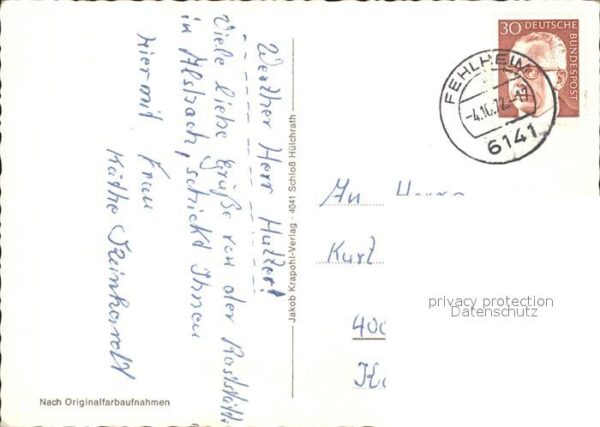 Werther Herr Hutter!
Viele liebe Grüße von der Raststätte
in Alsbach, schickt Ihnen
hiermit Frau
Käthe Reinhardt
Jakob Krapohl-Verlag · 4041 Schloß Hülchrath
Nach Originalfarbaufnahmen
30 DEUTSCHE BUNDESPOST
FEHLHEIM
-4.10.72.-17
6141
An Herrn
Kurt
400
privacy protection
Datenschutz